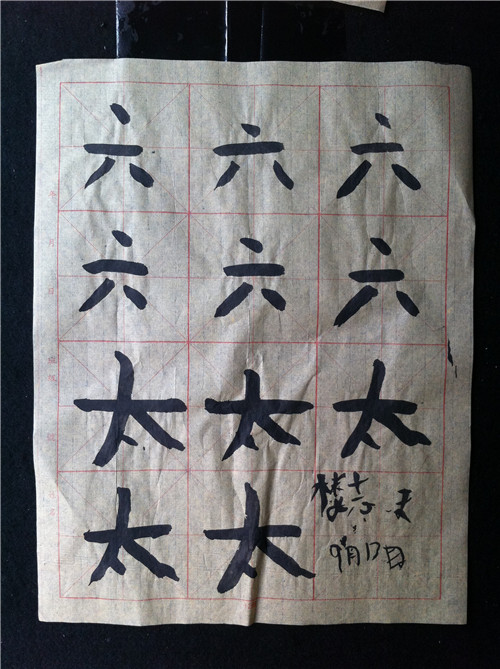 六六六
六六六
太太太
太太
9月17日